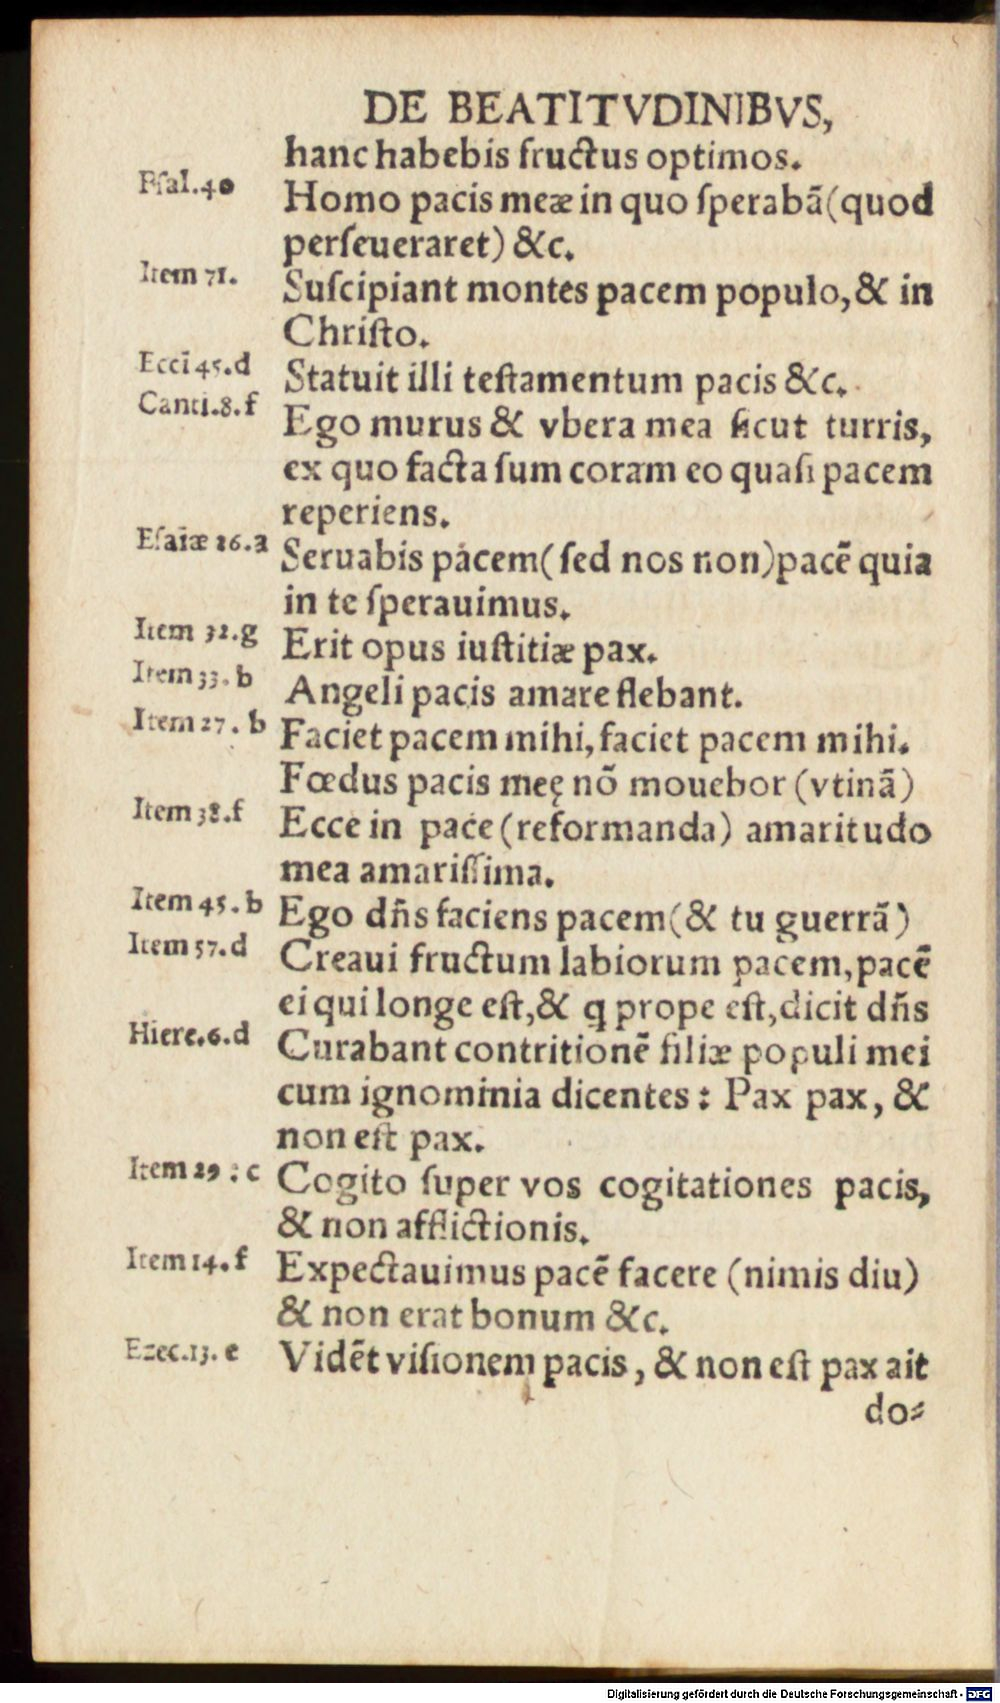 DE BEATITVDINIBVS,
hanc habebis fructus optimos.
Psal.40
Homo pacis meæ in quo ſperabã(quod
perſeueraret) &c.
Item 71.
Suſcipiant montes pacem populo,& in
Chriſto.
Eccĩ 45.d
Statuit illi teſtamentum pacis &c.
Canti.8.f
Ego murus & vbera mea ſicut turris,
ex quo facta ſum coram eo quaſi pacem
reperiens.
Eſaiæ 26.a
Seruabis pacem(ſed nos non)pacẽ quia
in te ſperauimus.
Item 32.g
Erit opus iuſtitiæ pax.
Item 33.b
Angeli pacis amare flebant.
Item 27.b
Faciet pacem mihi, faciet pacem mihi.
Fœdus pacis meę nõ mouebor (vtinã)
Item 38.f
Ecce in pace (reformanda) amaritudo
mea amariſſima.
Item 45.b
Ego dñs faciens pacem(& tu guerrã)
Item 57.d
Creaui fructum labiorum pacem,pacẽ
ei qui longe eſt,& q prope eſt,dicit dñs
Hiere.6.d
Curabant contritionẽ filiæ populi mei
cum ignominia dicentes: Pax pax, &
non eſt pax.
Item 29:c
Cogito ſuper vos cogitationes pacis,
& non afflictionis.
Item 14.f
Expectauimus pacẽ facere (nimis diu)
& non erat bonum &c.
Ezec.13.e
Vidẽt viſionem pacis, & non eſt pax ait
do⸗
Digitalisierung gefördert durch die Deutsche Forschungsgemeinschaft - DFG